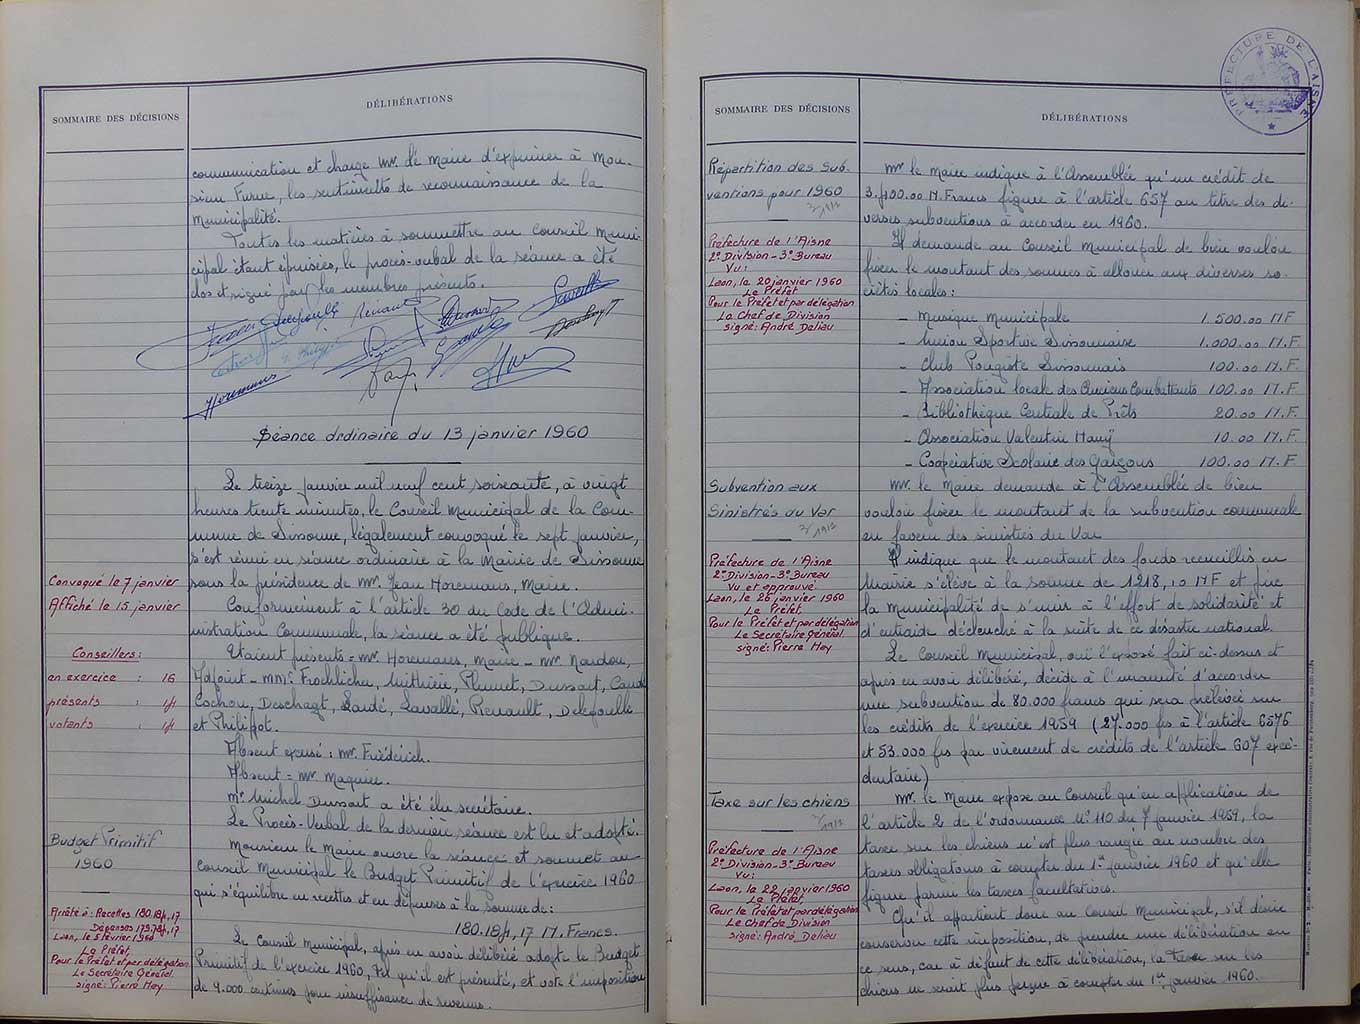 SOMMAIRE DES DÉCISIONS
DÉLIBÉRATIONS
communication et charge Mr. le Maire d'exprimer à Mon-
sieur Furne, les sentiments de reconnaissance de la
Municipalité.
Toutes les matières à soumettre au Conseil Muni-
cipal étant épuisées, le procès-verbal de la séance a été
clos et signé par les membres présents.
Renault
Horemans
Séance ordinaire du 13 janvier 1960
Le treize janvier mil neuf cent soixante, à vingt
heures trente minutes, le Conseil Municipal de la Com-
mune de Sissonne, légalement convoqué le sept janvier,
s'est réuni en séance ordinaire à la Mairie de Sissonne
sous la présidence de Mr. Jean Horemans, Maire.
Convoqué le 7 janvier
Affiché le 15 janvier
Conformément à l'article 30 du Code de l'Admi-
nistration Communale, la séance a été publique.
Conseillers:
en exercice : 16
présents : 14
votants : 14
Etaient présents = Mr. Horemans, Maire - Mr. Nardou,
Adjoint - MMrs Froehlicher, Mithière, Plumet, Dussart,
Cochon, Deschagt, Lardé, Lavallé, Renault, Delepouelle
et Philipot.
Absent excusé : Mr. Friédérich.
Absent = Mr Maquin.
Mr. Michel Dussart a été élu secrétaire.
Le Procès-Verbal de la dernière séance est lu et adopté.
Budget Primitif
1960
Monsieur le Maire ouvre la séance et soumet au
Conseil Municipal le Budget Primitif de l'exercice 1960
qui s'équilibre en recettes et en dépenses à la somme de:
180.184,17 N. Francs.
Arrêté à : Recettes 180.184,17
Dépenses 179.784,17
Laon, le 5 février 1960
Le Préfet,
Pour le Préfet et par délégation
Le Secrétaire Général
signé: Pierre Hay
Le Conseil Municipal, après en avoir délibéré adopte le Budget
Primitif de l'exercice 1960, tel qu'il est présenté, et vote l'imposition
de 9.000 centimes pour insuffisance de revenus.
PRÉFECTURE DE L'AISNE
SOMMAIRE DES DÉCISIONS
DÉLIBÉRATIONS
Répartition des sub-
ventions pour 1960
Préfecture de l'Aisne
2e Division - 3e Bureau
Vu:
Laon, le 20 janvier 1960
Le Préfet
Pour le Préfet et par délégation
Le Chef de Division
signé: André Delieu
Mr le Maire indique à l'Assemblée qu'un crédit de
3.400.00 N. Francs figure à l'article 657 au titre des di-
verses subventions à accorder en 1960.
Il demande au Conseil Municipal de bien vouloir
fixer le montant des sommes à allouer aux diverses so-
ciétés locales:
- Musique Municipale 1.500.00 NF
- Union Sportive Sissonnaise 1.000.00 N.F.
- Club Pongiste Sissonnais 100.00 N.F.
- Association locale des Anciens Combattants 100.00 N.F.
- Bibliothèque Centrale de Prêts 20.00 N.F.
- Association Valentin Haüy 10.00 N.F.
- Coopérative Scolaire des Garçons 100.00 N.F.
Subvention aux
Sinistrés du Var
Préfecture de l'Aisne
2e Division - 3e Bureau
Vu et approuvé
Laon, le 26 janvier 1960
Le Préfet,
Pour le Préfet et par délégation
Le Secrétaire Général
signé: Pierre Hay
Mr. le Maire demande à l'Assemblée de bien
vouloir fixer le montant de la subvention communale
en faveur des sinistrés du Var
Il indique que le montant des fonds recueillis en
Mairie s'élève à la somme de 1218,10 NF et prie
la Municipalité de s'unir à l'effort de solidarité et
d'entraide déclenché à la suite de ce désastre national.
Le Conseil Municipal, ouï l'exposé fait ci-dessus et
après en avoir délibéré, décide à l'unanimité d'accorder
une subvention de 80.000 francs qui sera prélevée sur
les crédits de l'exercice 1959 (27.000 frs à l'article 6576
et 53.000 frs par virement de crédits de l'article 607 excé-
dentaire)
Taxe sur les chiens
Préfecture de l'Aisne
2e Division - 3e Bureau
Vu:
Laon, le 22 janvier 1960
Le Préfet,
Pour le Préfet et par délégation
Le Chef de Division
signé: André Delieu
Mr. le Maire expose au Conseil qu'en application de
l'article 2 de l'ordonnance N° 110 du 7 janvier 1959, la
taxe sur les chiens n'est plus rangée au nombre des
taxes obligatoires à compter du 1er janvier 1960 et qu'elle
figure parmi les taxes facultatives.
Qu'il appartient donc au Conseil Municipal, s'il désire
conserver cette imposition, de prendre une délibération en
ce sens, car à défaut de cette délibération, la taxe sur les
chiens ne serait plus perçue à compter du 1er janvier 1960.